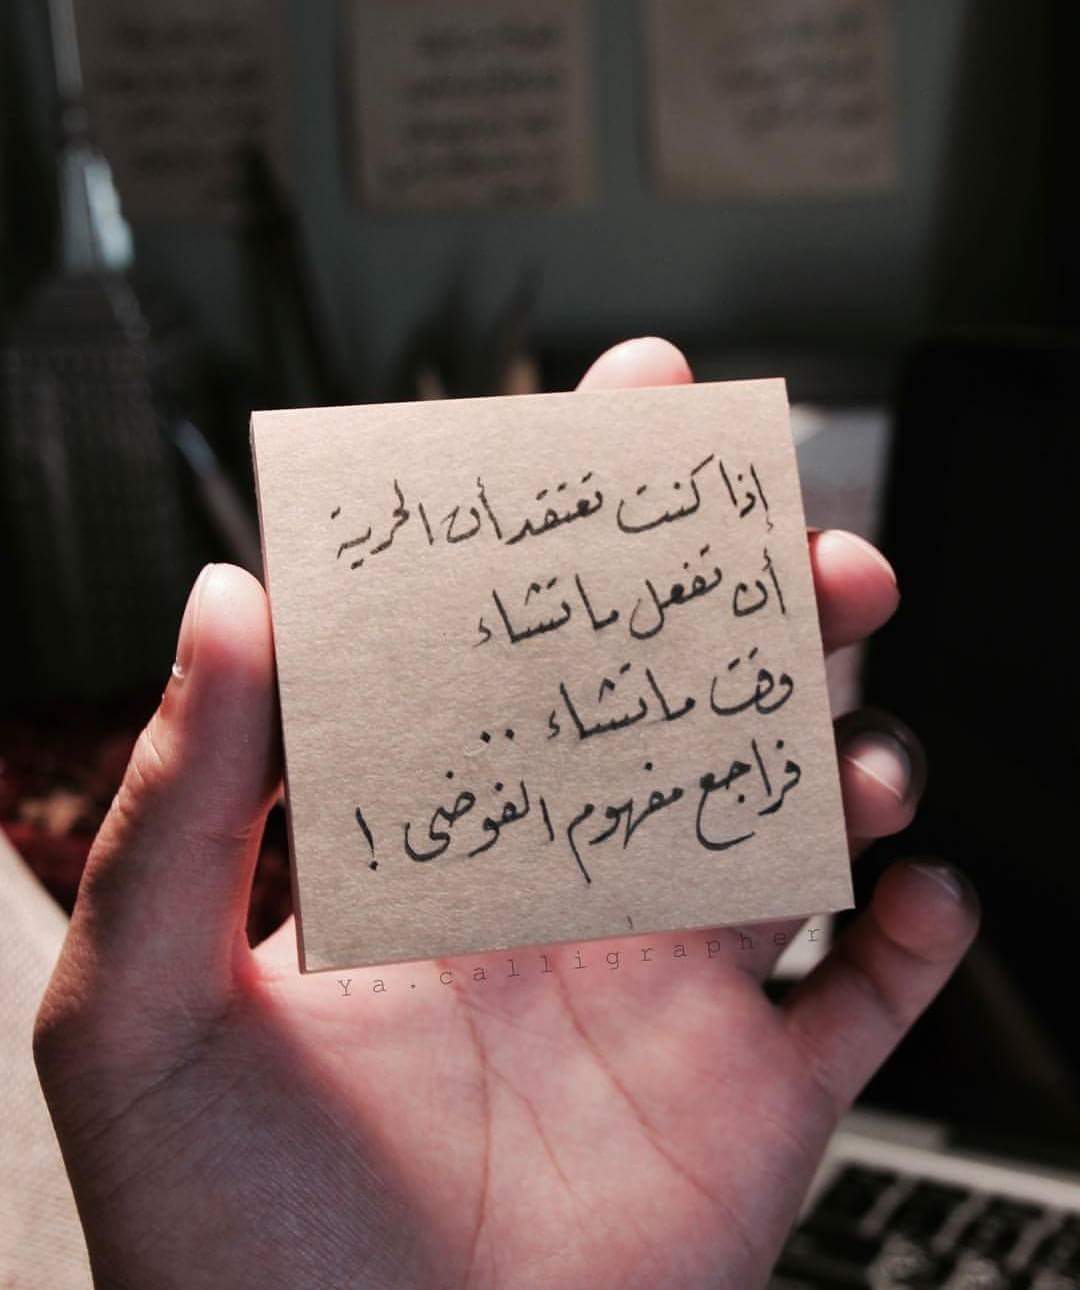 إذا كنت تعتقد أن الحرية
أن تفعل ما تشاء
وقت ما تشاء ..
فراجع مفهوم الفوضى !
Ya.calligrapher